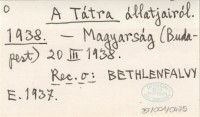 O
A Tátra állatjairól.
1938. — Magyarság (Buda-
pest) 20 III 1938.
Rec. o: BETHLENFALVY
E. 1937.